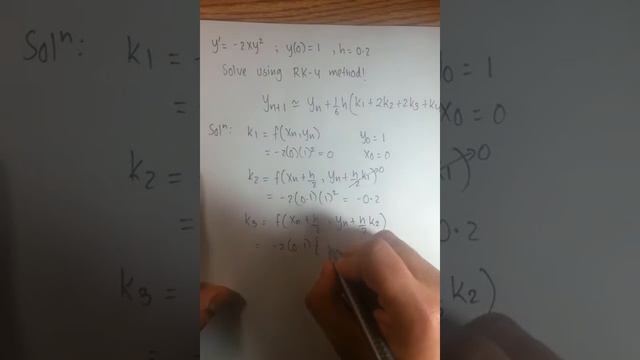 y' = -2xy² ; y(0)=1 , h=0.2
Solve using RK-4 method!
yn+1 ≃ yn + 1/6 h(k1 + 2k2 + 2k3 + k4
Solⁿ: k1 = f(xn, yn) y0 = 1
= -2(0)(1)² = 0 x0 = 0
k2 = f(xn + h/2 , yn + h/2 k1) 0
= -2(0.1)(1)² = -0.2
k3 = f(xn + h/2 , yn + h/2 k2)
= -2(0.1){